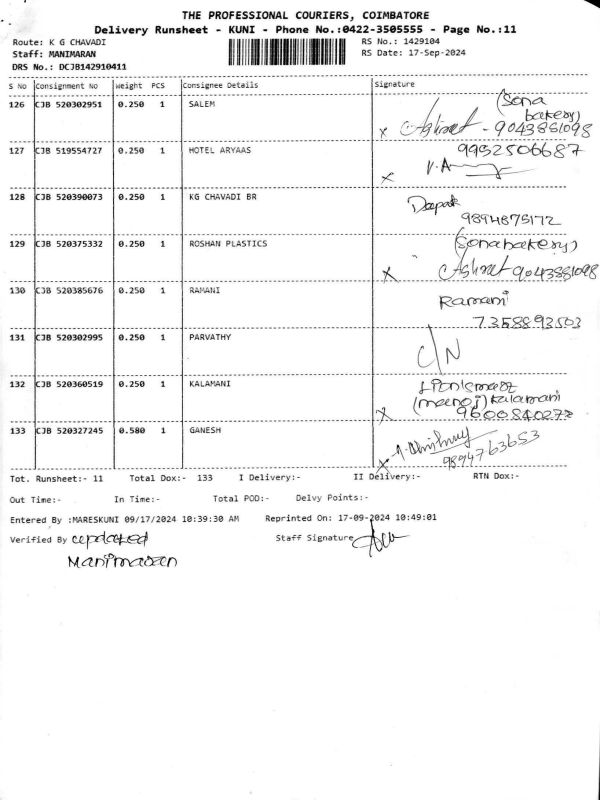 THE PROFESSIONAL COURIERS, COIMBATORE
Delivery Runsheet - KUNI - Phone No.:0422-3505555 - Page No.:11
Route: K G CHAVADI RS No.: 1429104
Staff: MANIMARAN RS Date: 17-Sep-2024
DRS No.: DCJB142910411
S No Consignment No Weight PCS Consignee Details Signature
126 CJB 520302951 0.250 1 SALEM (Sona
bakery)
x - 9043881098
127 CJB 519554727 0.250 1 HOTEL ARYAAS 9952506687
x V.A
128 CJB 520390073 0.250 1 KG CHAVADI BR Deepak
9894875172
129 CJB 520375332 0.250 1 ROSHAN PLASTICS (Sona bakery)
x 9043881098
130 CJB 520385676 0.250 1 RAMANI Ramani
7358893503
131 CJB 520302995 0.250 1 PARVATHY C/N
132 CJB 520360519 0.250 1 KALAMANI
x (manoj) kalamani
9600840273
133 CJB 520327245 0.580 1 GANESH
x 9894763653
Tot. Runsheet:- 11 Total Dox:- 133 I Delivery:- II Delivery:- RTN Dox:-
Out Time:- In Time:- Total POD:- Delvy Points:-
Entered By :MARESKUNI 09/17/2024 10:39:30 AM Reprinted On: 17-09-2024 10:49:01
Verified By updated Staff Signature
Manimaran